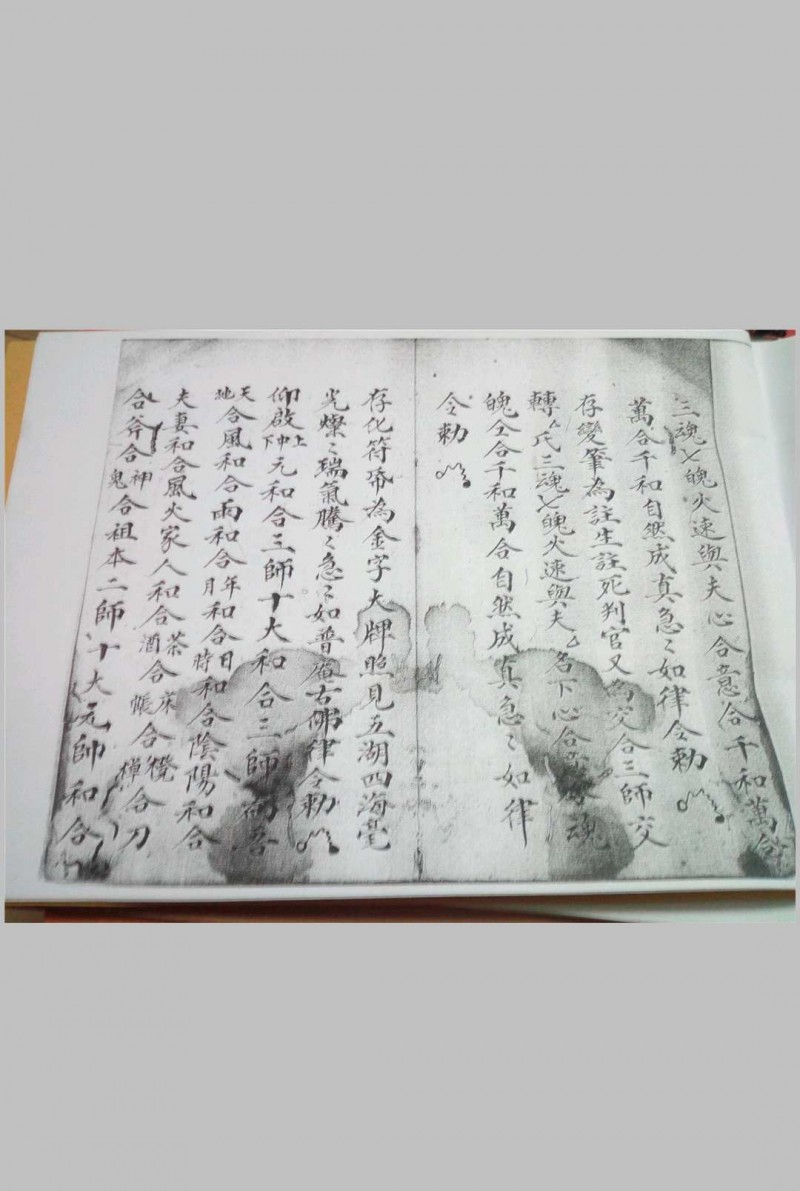 三魂七魄火速與夫心合意合千和萬合
萬合千和自然成真急〻如律令勅
存變筆為註生註死判官又為交合三師交
轉厶氏三魂七魄火速與夫厶名下心合魂
魄仝合千和萬合自然成真急〻如律
令勅
存化符帋為金字大牌照見五湖四海毫
光燦〻瑞氣騰〻急〻如普庵古佛律令勅
仰啟上中下元和合三師十大和合三師吾
天地合風和合雨和合年月和合日時和合陰陽和合
夫妻和合風火家人和合茶酒合床帳合櫈棹合刀
合斧合神鬼合祖本二師十大元帥和合